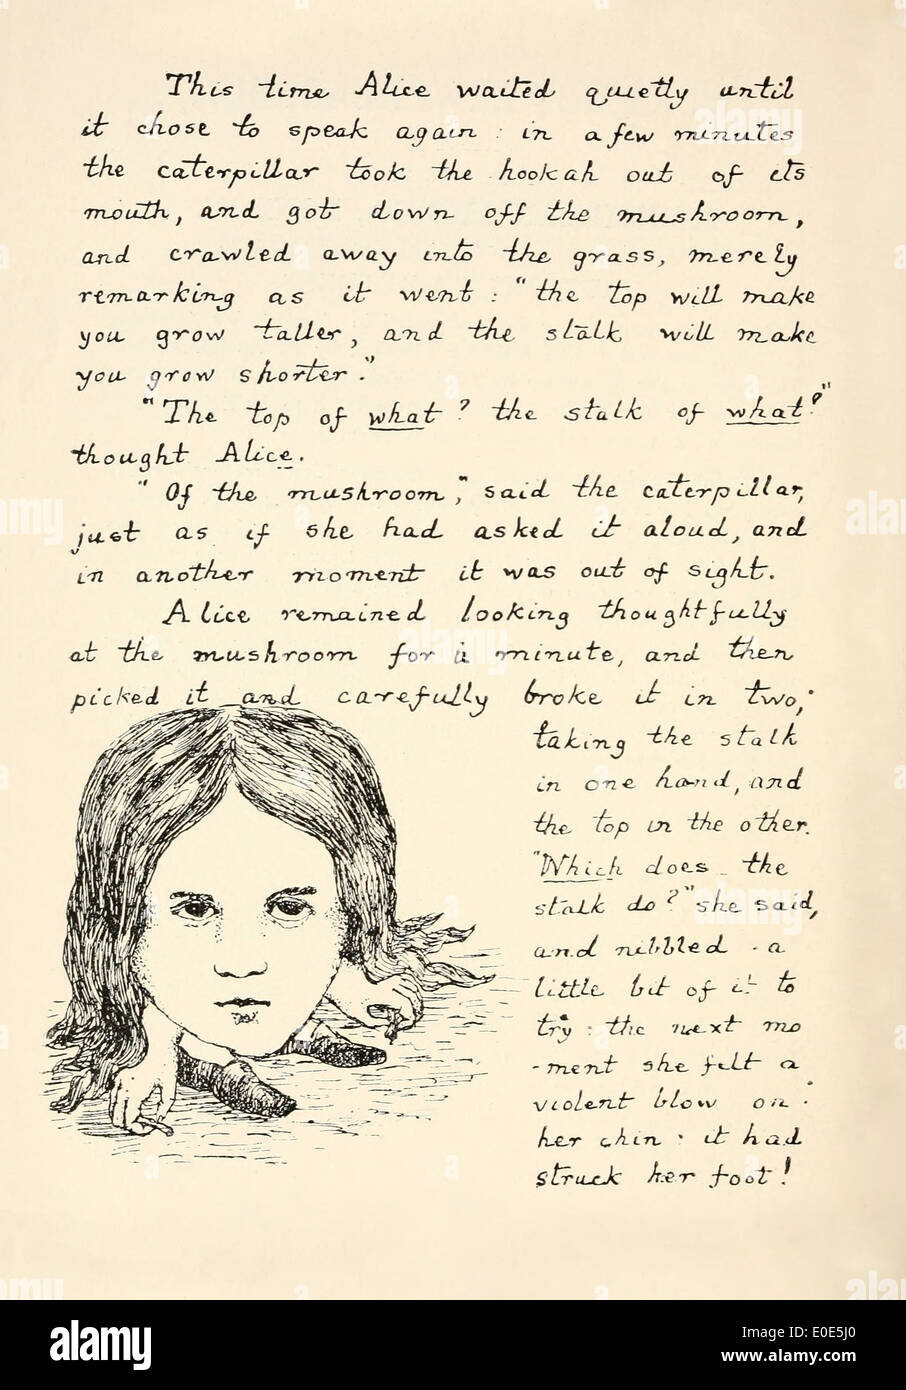 This time Alice waited quietly until
it chose to speak again : in a few minutes
the caterpillar took the hookah out of its
mouth, and got down off the mushroom,
and crawled away into the grass, merely
remarking as it went : "the top will make
you grow taller, and the stalk will make
you grow shorter."
"The top of what? the stalk of what?"
thought Alice.
"Of the mushroom," said the caterpillar,
just as if she had asked it aloud, and
in another moment it was out of sight.
Alice remained looking thoughtfully
at the mushroom for a minute, and then
picked it and carefully broke it in two,
taking the stalk
in one hand, and
the top in the other.
"Which does the
stalk do?" she said,
and nibbled a
little bit of it to
try : the next mo
-ment she felt a
violent blow on
her chin : it had
struck her foot!
alamy
Image ID: E0E5J0
www.alamy.com